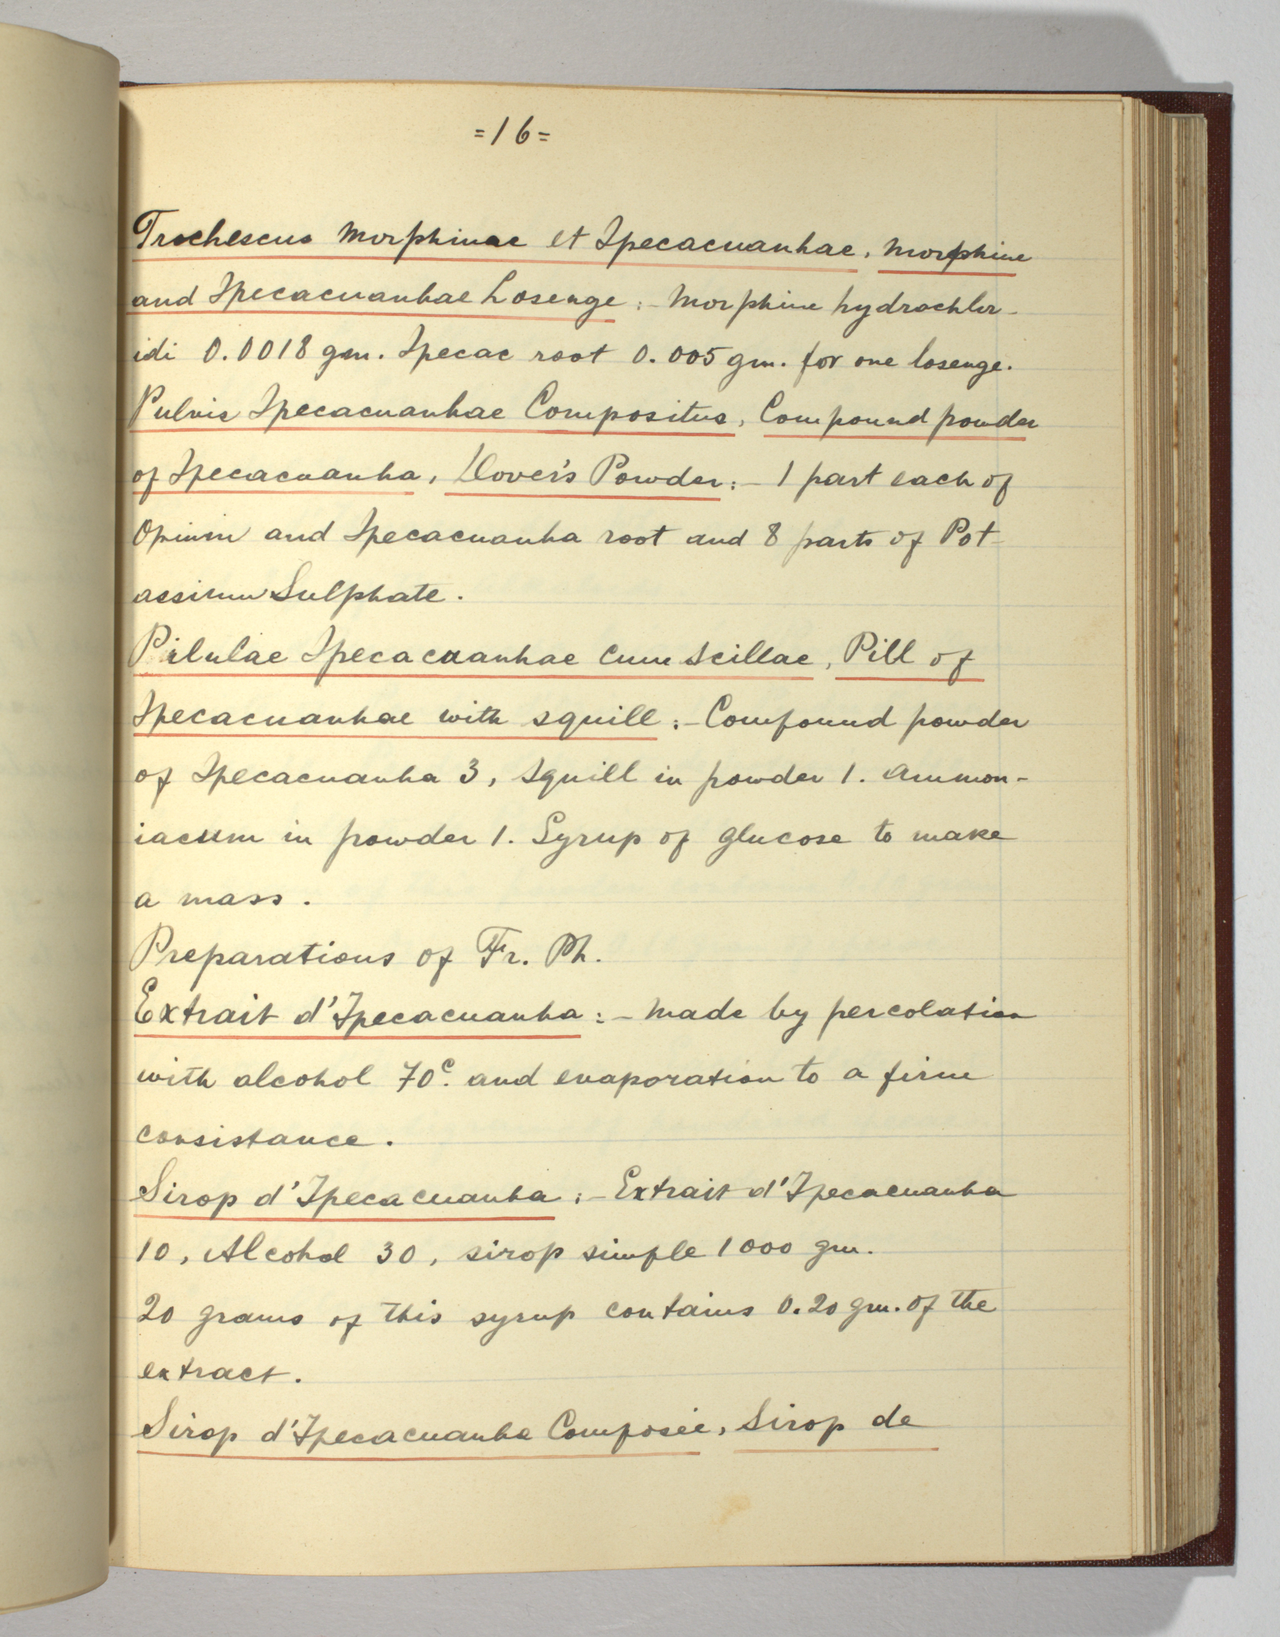 =16=
Trochescus Morphinae et Ipecacuanhae, Morphine
and Ipecacuanhae Losenge :- Morphine hydrochlor-
idi 0.0018 gm. Ipecac root 0.005 gm. for one losenge.
Pulvis Ipecacuanhae Compositus, Compound powder
of Ipecacuanha, Dover's Powder :- 1 part each of
Opium and Ipecacuanha root and 8 parts of Pot-
assium Sulphate.
Pilulae Ipecacuanhae cum Scillae, Pill of
Ipecacuanhae with squill :- Compound powder
of Ipecacuanha 3, Squill in powder 1. Ammon-
iacum in powder 1. Syrup of glucose to make
a mass.
Preparations of Fr. Ph.
Extrait d'Ipecacuanha :- Made by percolation
with alcohol 70c. and evaporation to a firm
consistance.
Sirop d'Ipecacuanha :- Extrait d'Ipecacuanha
10, Alcohol 30, sirop simple 1000 gm.
20 grams of this syrup contains 0.20 gm. of the
extract.
Sirop d'Ipecacuanha Composée, Sirop de